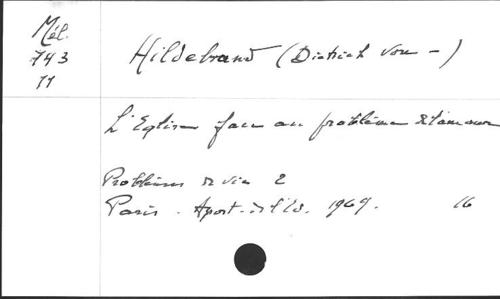 Mél.
743
11
Hildebrand (Dietrich von -)
L'Eglise face au problème de l'amour
Problèmes de vie 2
Paris. Apost. des Ed. 1969. 16